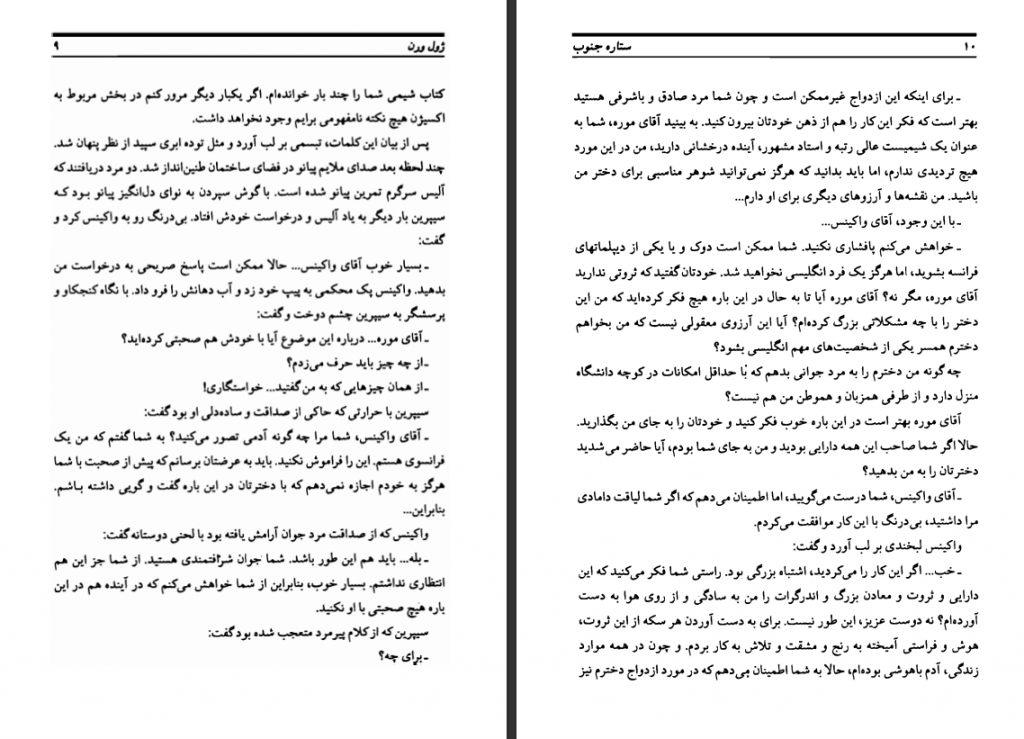 ژول ورن ۹
کتاب شیمی شما را چند بار خوانده‌ام. اگر یکبار دیگر مرور کنم در بخش مربوط به
اکسیژن هیچ نکته نامفهومی برایم وجود نخواهد داشت.
پس از بیان این کلمات، تبسمی بر لب آورد و مثل توده ابری سپید از نظر پنهان شد.
چند لحظه بعد صدای ملایم پیانو در فضای ساختمان طنین‌انداز شد. دو مرد دریافتند که
آلیس سرگرم تمرین پیانو شده است. با گوش سپردن به نوای دل‌انگیز پیانو بود که
سیپرین بار دیگر به یاد آلیس و درخواست خودش افتاد. بی‌درنگ رو به واکینس کرد و
گفت:
ـ بسیار خوب آقای واکینس... حالا ممکن است پاسخ صریحی به درخواست من
بدهید. واکینس پک محکمی به پیپ خود زد و آب دهانش را فرو داد. با نگاه کنجکاو و
پرسشگر به سیپرین چشم دوخت و گفت:
ـ آقای موره... درباره این موضوع آیا با خودش هم صحبتی کرده‌اید؟
ـ از چه چیز باید حرف می‌زدم؟
ـ از همان چیزهایی که به من گفتید... خواستگاری!
سیپرین با حرارتی که حاکی از صداقت و ساده‌دلی او بود گفت:
ـ آقای واکینس، شما مرا چه گونه آدمی تصور می‌کنید؟ به شما گفتم که من یک
فرانسوی هستم. این را فراموش نکنید. باید به عرضتان برسانم که پیش از صحبت با شما
هرگز به خودم اجازه نمی‌دهم که با دخترتان در این باره گفت و گویی داشته باشم.
بنابراین...
واکینس که از صداقت مرد جوان آرامش یافته بود با لحنی دوستانه گفت:
ـ بله... باید هم این طور باشد. شما جوان شرافتمندی هستید. از شما جز این هم
انتظاری نداشتم. بسیار خوب، بنابراین از شما خواهش می‌کنم که در آینده هم در این
باره هیچ صحبتی با او نکنید.
سیپرین که از کلام پیرمرد متعجب شده بود گفت:
ـ برای چه؟
۱۰ ستاره جنوب
ـ برای اینکه این ازدواج غیرممکن است و چون شما مرد صادق و باشرفی هستید
بهتر است که فکر این کار را هم از ذهن خودتان بیرون کنید. به بینید آقای موره، شما به
عنوان یک شیمیست عالی رتبه و استاد مشهور، آینده درخشانی دارید، من در این مورد
هیچ تردیدی ندارم، اما باید بدانید که هرگز نمی‌توانید شوهر مناسبی برای دختر من
باشید. من نقشه‌ها و آرزوهای دیگری برای او دارم...
ـ با این وجود، آقای واکینس...
ـ خواهش می‌کنم پافشاری نکنید. شما ممکن است دوک و یا یکی از دیپلماتهای
فرانسه بشوید، اما هرگز یک فرد انگلیسی نخواهید شد. خودتان گفتید که ثروتی ندارید
آقای موره، مگر نه؟ آقای موره آیا تا به حال در این باره هیچ فکر کرده‌اید که من این
دختر را با چه مشکلاتی بزرگ کرده‌ام؟ آیا این آرزوی معقولی نیست که من بخواهم
دخترم همسر یکی از شخصیت‌های مهم انگلیسی بشود؟
چه گونه من دخترم را به مرد جوانی بدهم که با حداقل امکانات در کوچه دانشگاه
منزل دارد و از طرفی همزبان و هموطن من هم نیست؟
آقای موره بهتر است در این باره خوب فکر کنید و خودتان را به جای من بگذارید.
حالا اگر شما صاحب این همه دارایی بودید و من به جای شما بودم، آیا حاضر می‌شدید
دخترتان را به من بدهید؟
ـ آقای واکینس، شما درست می‌گویید، اما اطمینان می‌دهم که اگر شما لیاقت دامادی
مرا داشتید، بی‌درنگ با این کار موافقت می‌کردم.
واکینس لبخندی بر لب آورد و گفت:
ـ خب... اگر این کار را می‌کردید، اشتباه بزرگی بود. راستی شما فکر می‌کنید که این
دارایی و ثروت و معادن بزرگ و اندرگرات را من به سادگی و از روی هوا به دست
آورده‌ام؟ نه دوست عزیز، این طور نیست. برای به دست آوردن هر سکه از این ثروت،
هوش و فراستی آمیخته به رنج و مشقت و تلاش به کار بردم. و چون در همه موارد
زندگی، آدم باهوشی بوده‌ام، حالا به شما اطمینان می‌دهم که در مورد ازدواج دخترم نیز